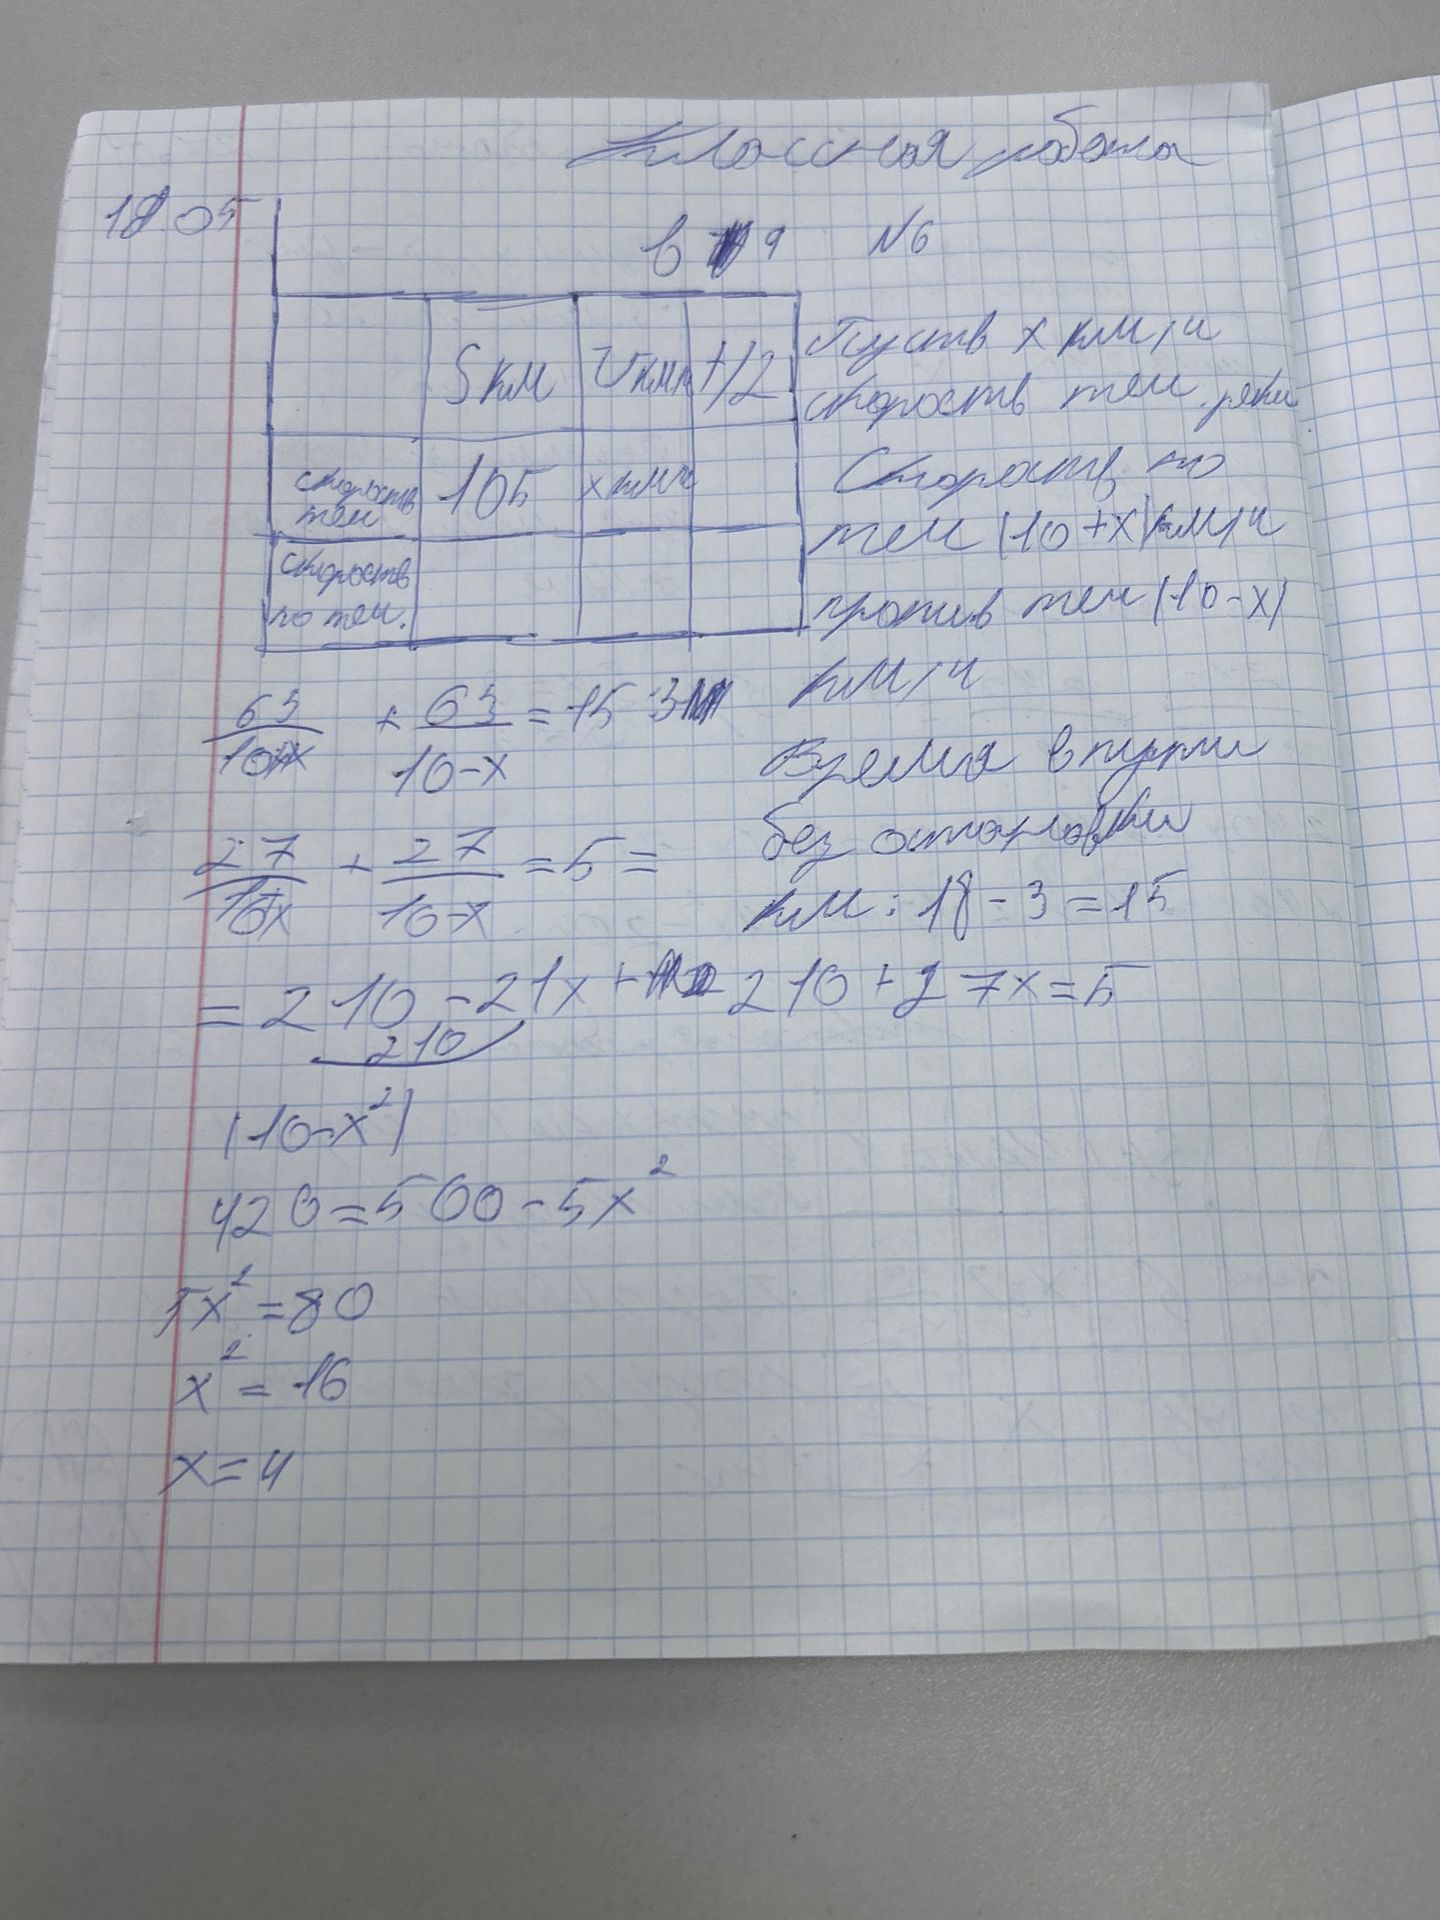 Классная работа
18 05
в 9 №6
S км V км/ч t/2
скорость теч 105 x км/ч
скорость по теч.
Пусть x км/ч
скорость теч. реки
Скорость по
теч (10+x) км/ч
против теч (10-x)
км/ч
Время в пути
без остановки
км: 18-3=15
63/10+x + 63/10-x = 15 :3
27/10+x + 27/10-x = 5 =
= 210 - 21x + 210 + 27x = 5
210
(10-x²)
420=500-5x²
5x²=80
x²=16
x=4